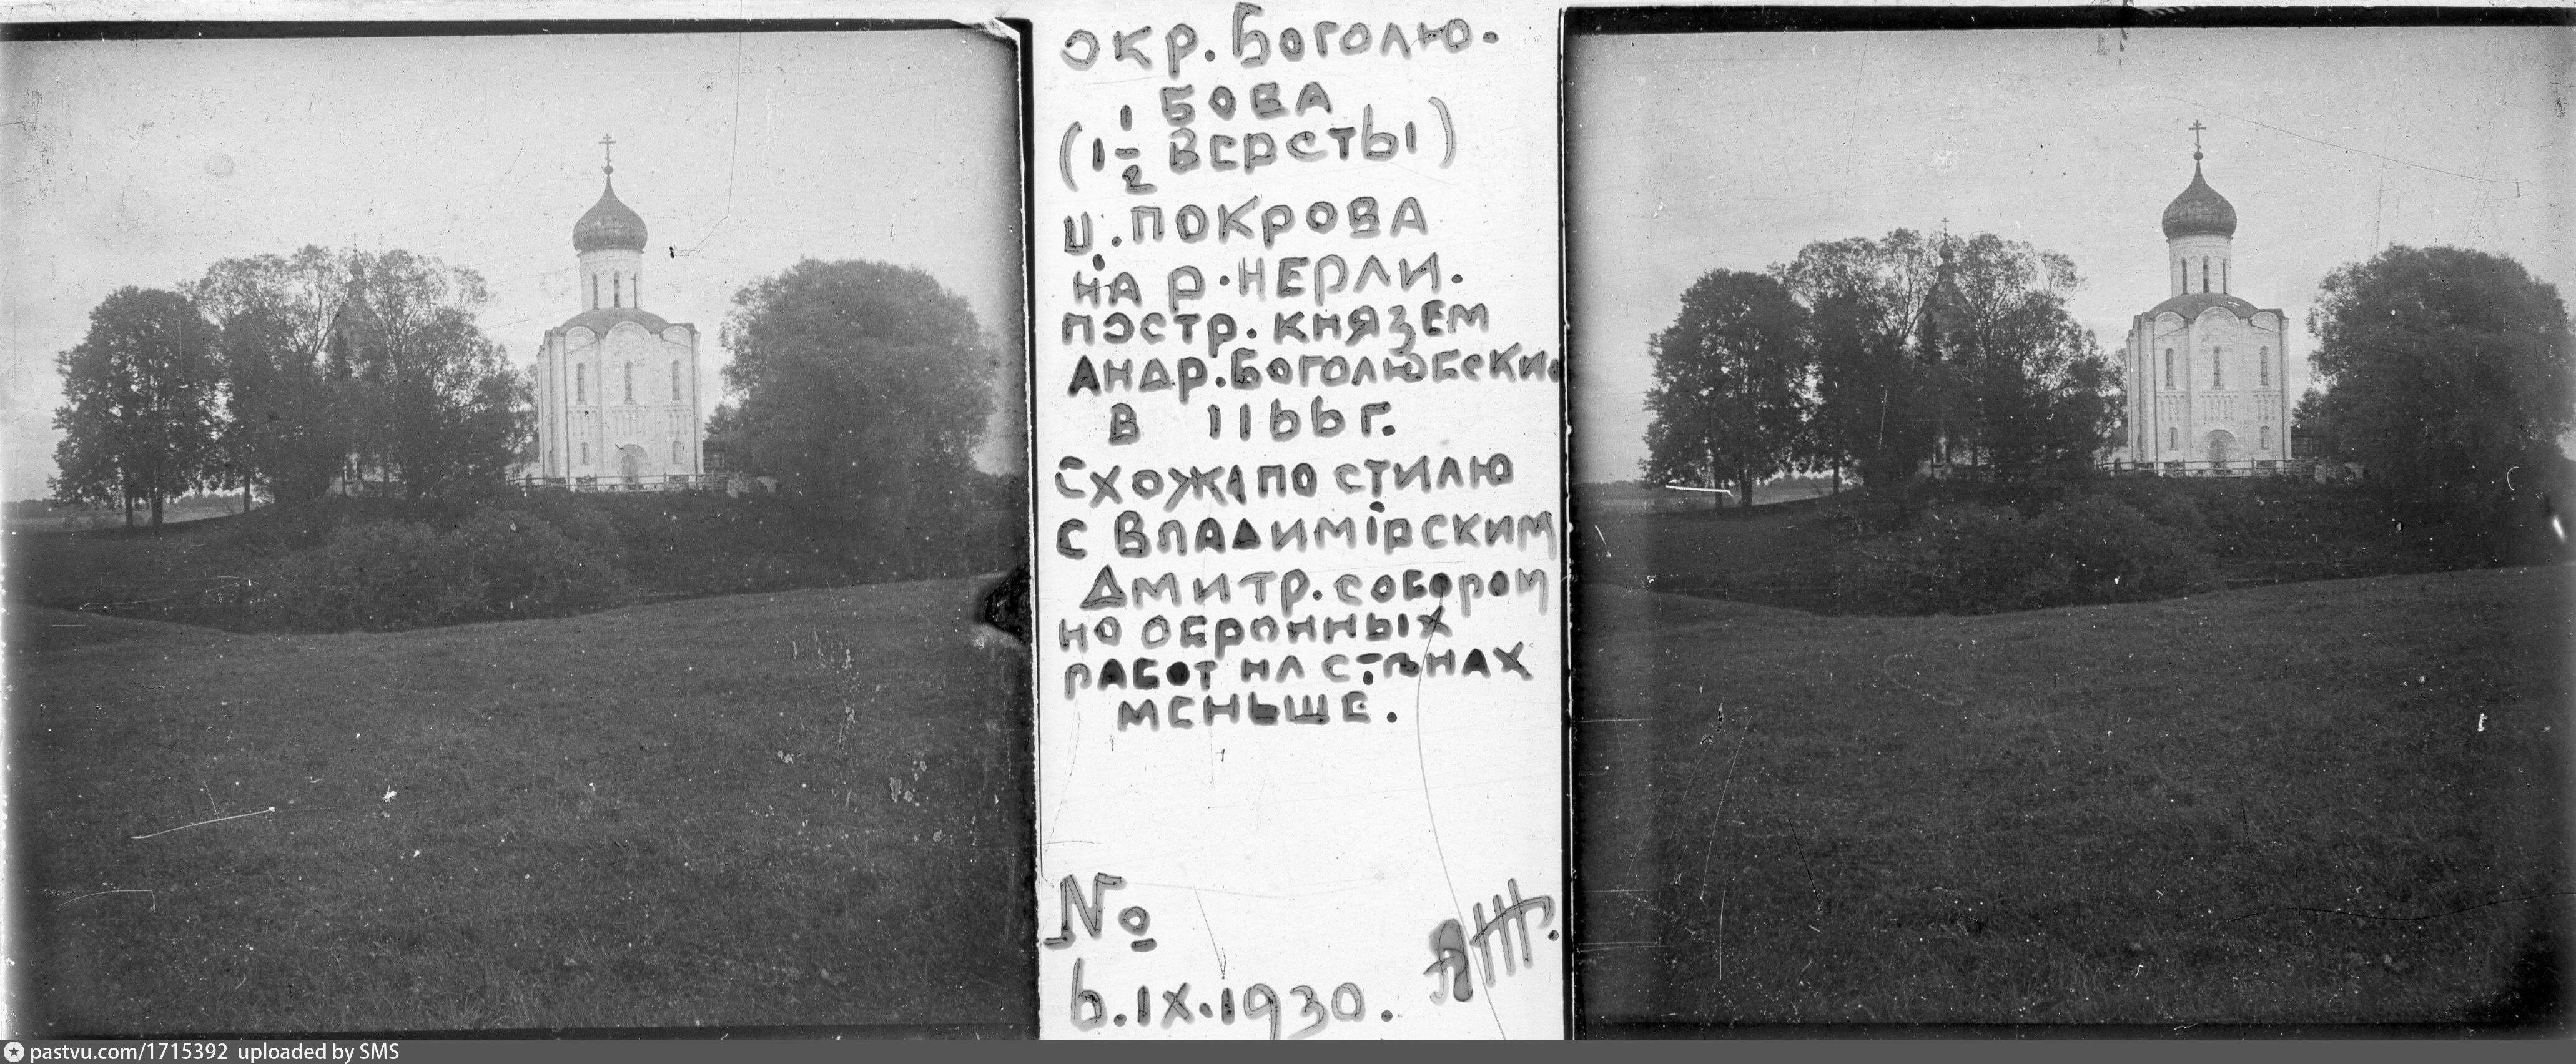 окр. Боголю.
бова
(1 1/2 версты)
ц. ПОКРОВА
НА р. НЕРЛИ.
постр. князем
Андр. Боголюбским
в 1166 г.
Схожа по стилю
с Владимiрским
Дмитр. собором
но обронных
работ на стѣнах
меньше.
№
6.IX.1930.
pastvu.com/1715392 uploaded by SMS